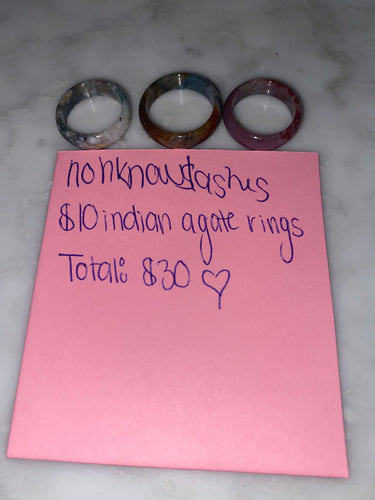 $10 indian agate rings
Total: $30